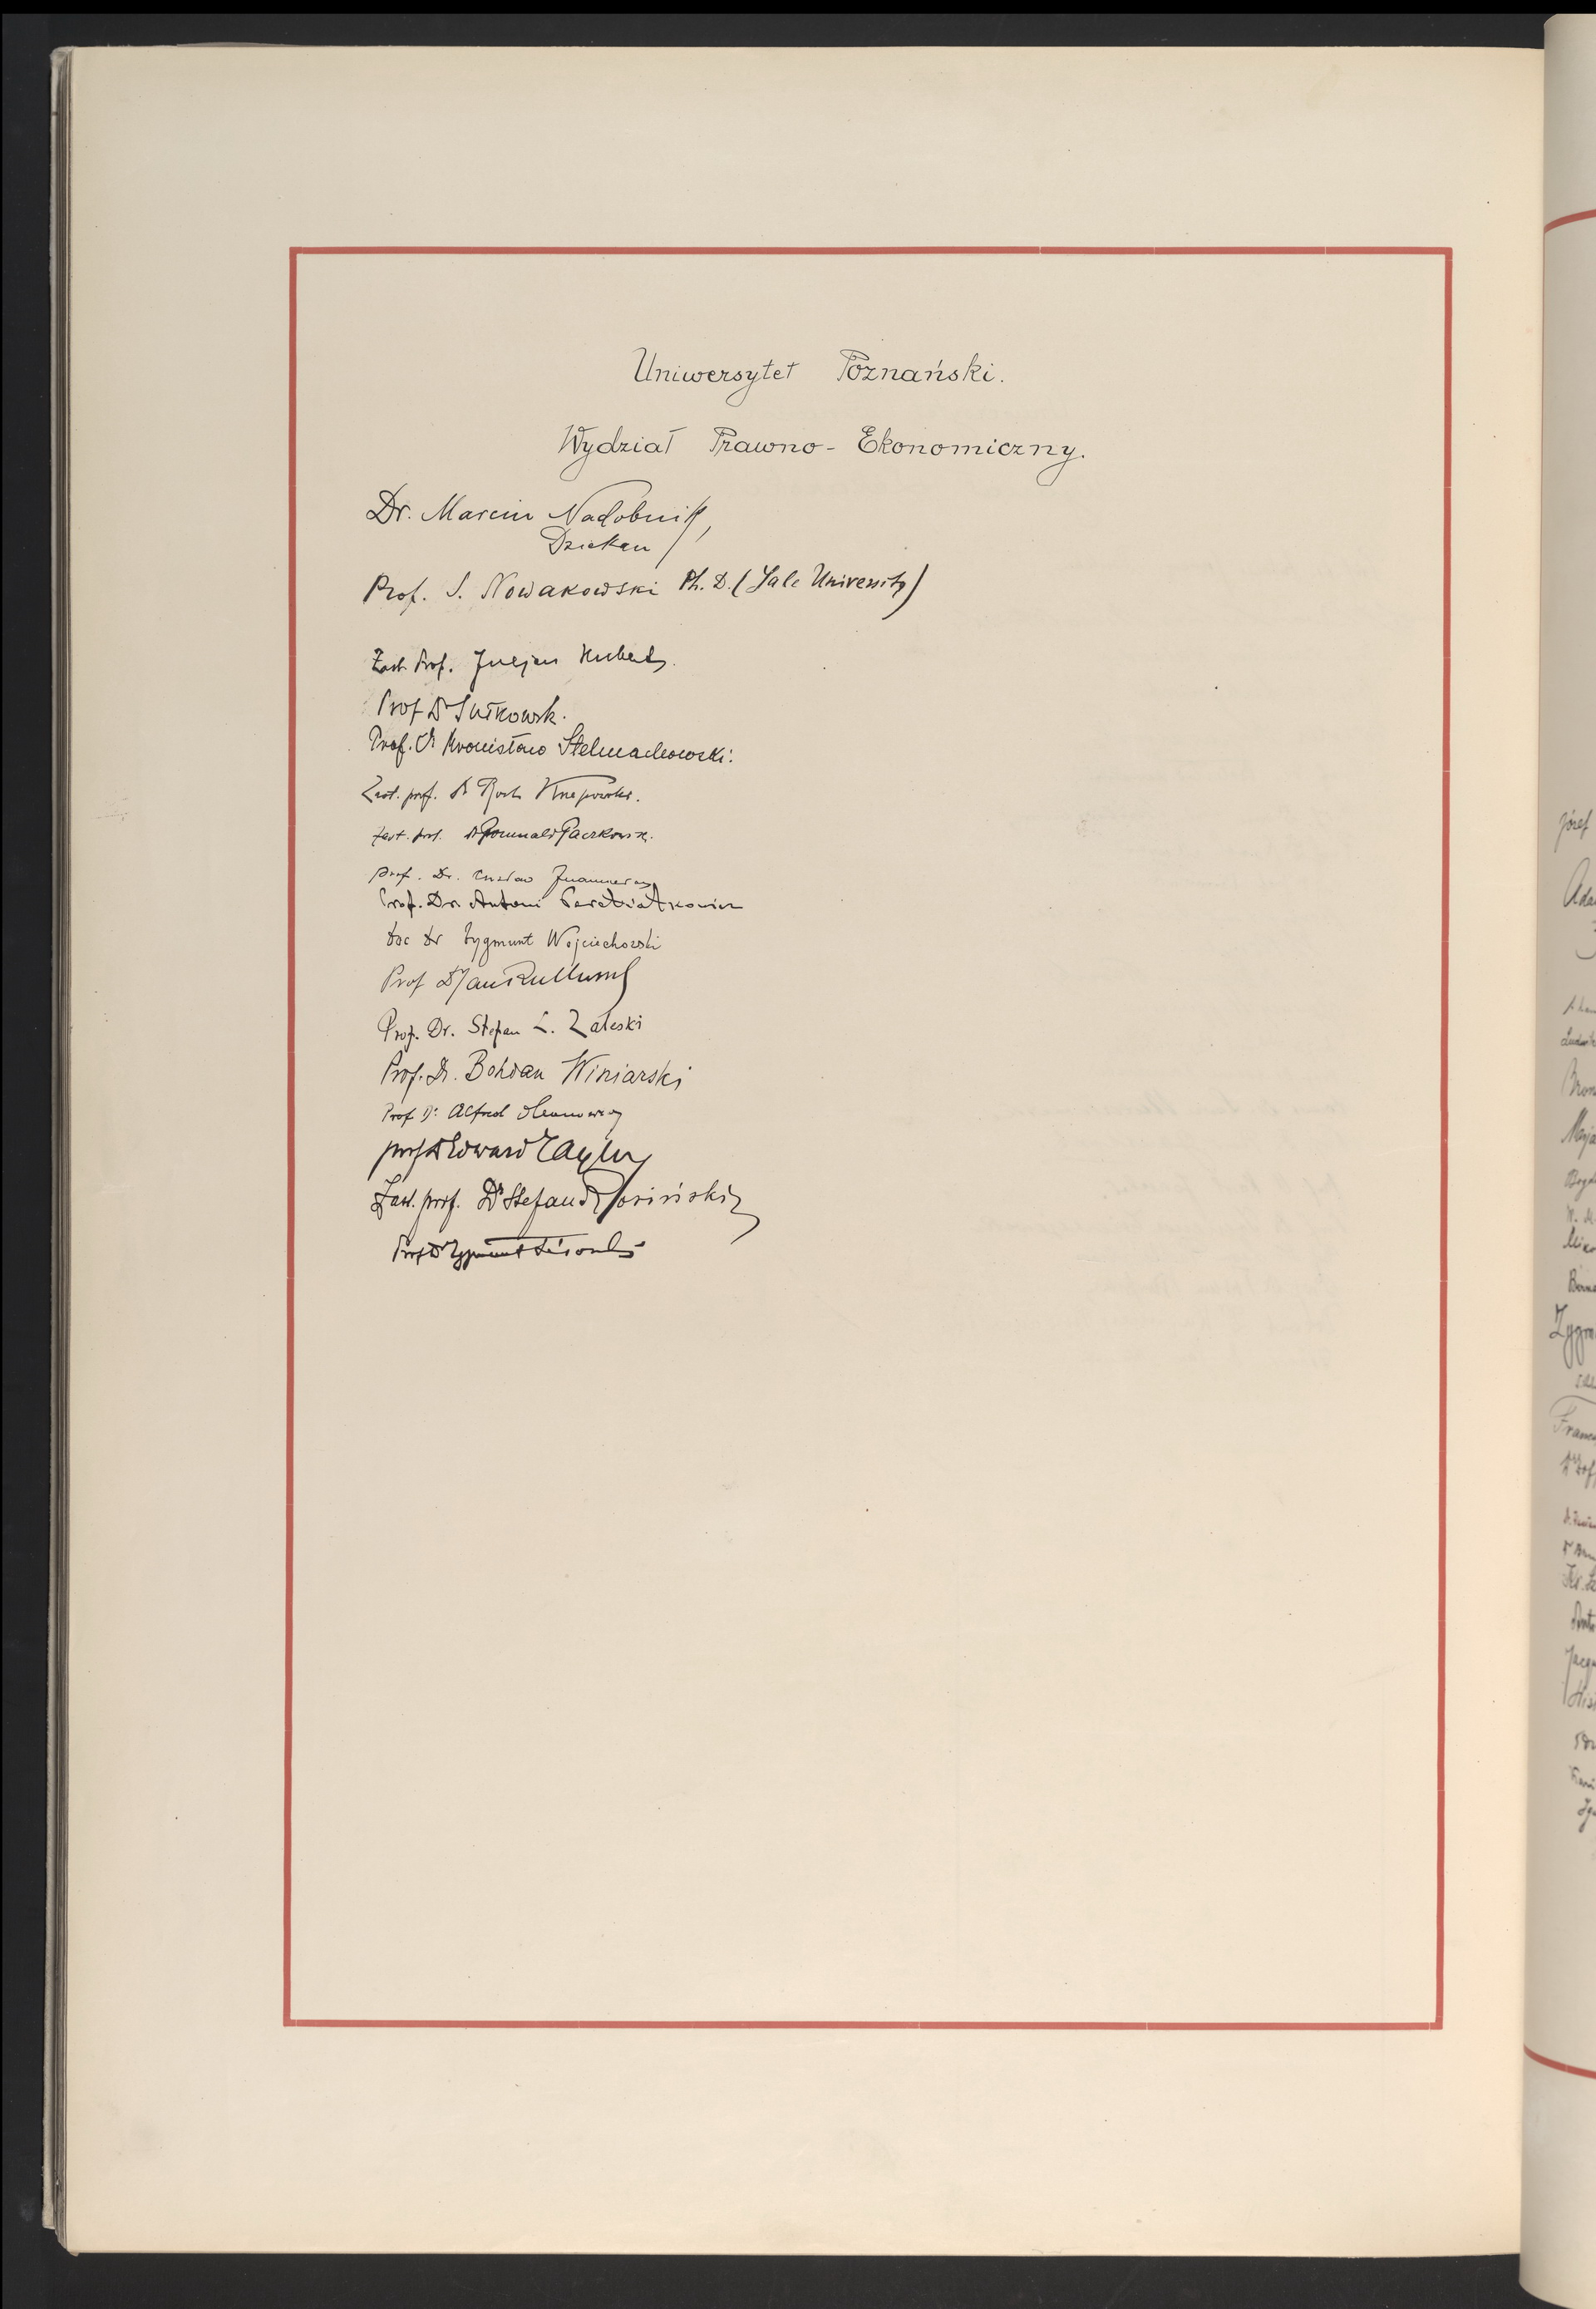 Uniwersytet Poznański.
Wydział Prawno-Ekonomiczny.
Dr. Marcin Nadobnik,
Dziekan
Prof. S. Nowakowski Ph. D. (Yale University)
Zast. Prof. Juljan Hubert
Prof Dr Sułkowski.
Prof. Dr Bronisław Stelmachowski.
Zast. prof. Dr Roch Knapowski.
Zast. prof. Dr Romuald Paczkowski.
prof. Dr. Czesław Znamierowski
Prof. Dr. Antoni Peretiatkowicz
Doc Dr Zygmunt Wojciechowski
Prof Dr Jan Rutkowski
Prof. Dr. Stefan L. Zaleski
Prof. Dr. Bohdan Winiarski
Prof Dr Alfred Ohanowicz
prof Dr Edward Taylor
Zast. prof. Dr Stefan Rosiński
Prof Dr Zygmunt Lisowski
Józef